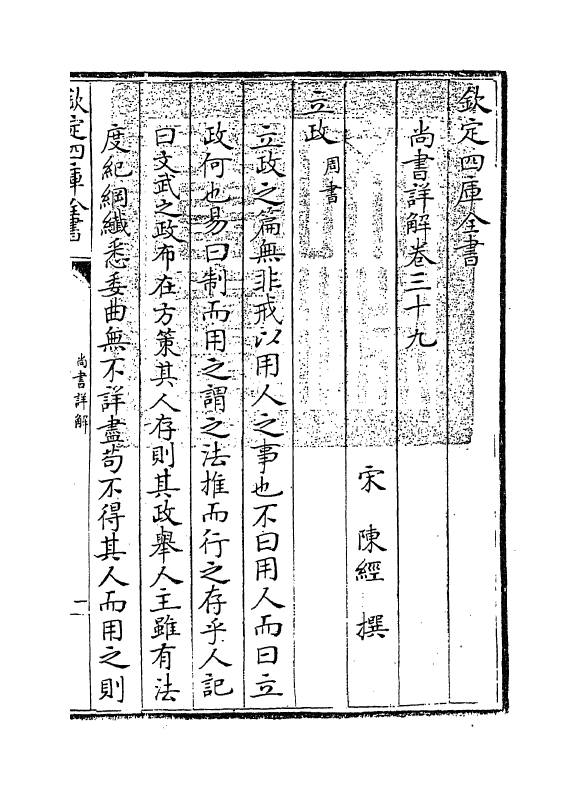 欽定四庫全書
尚書詳解卷三十九
宋 陳經 撰
立政 周書
立政之篇無非戒以用人之事也不曰用人而曰立
政何也易曰制而用之謂之法推而行之存乎人記
曰文武之政布在方策其人存則其政舉人主雖有法
度紀綱纖悉委曲無不詳盡茍不得其人而用之則
欽定四庫全書
尚書詳解
一